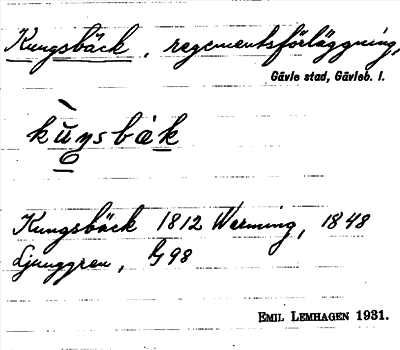 Kungsbäck, regementsförläggning,
Gävle stad, Gävleb. l.
Kungsbäck 1812 Werming, 1848
Ljunggren, G98
EMIL LEMHAGEN 1931.